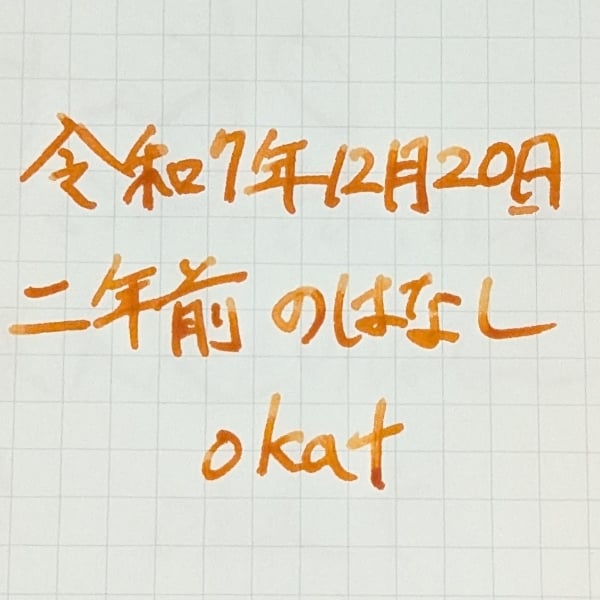 令和7年12月20日
二年前のはなし
okat